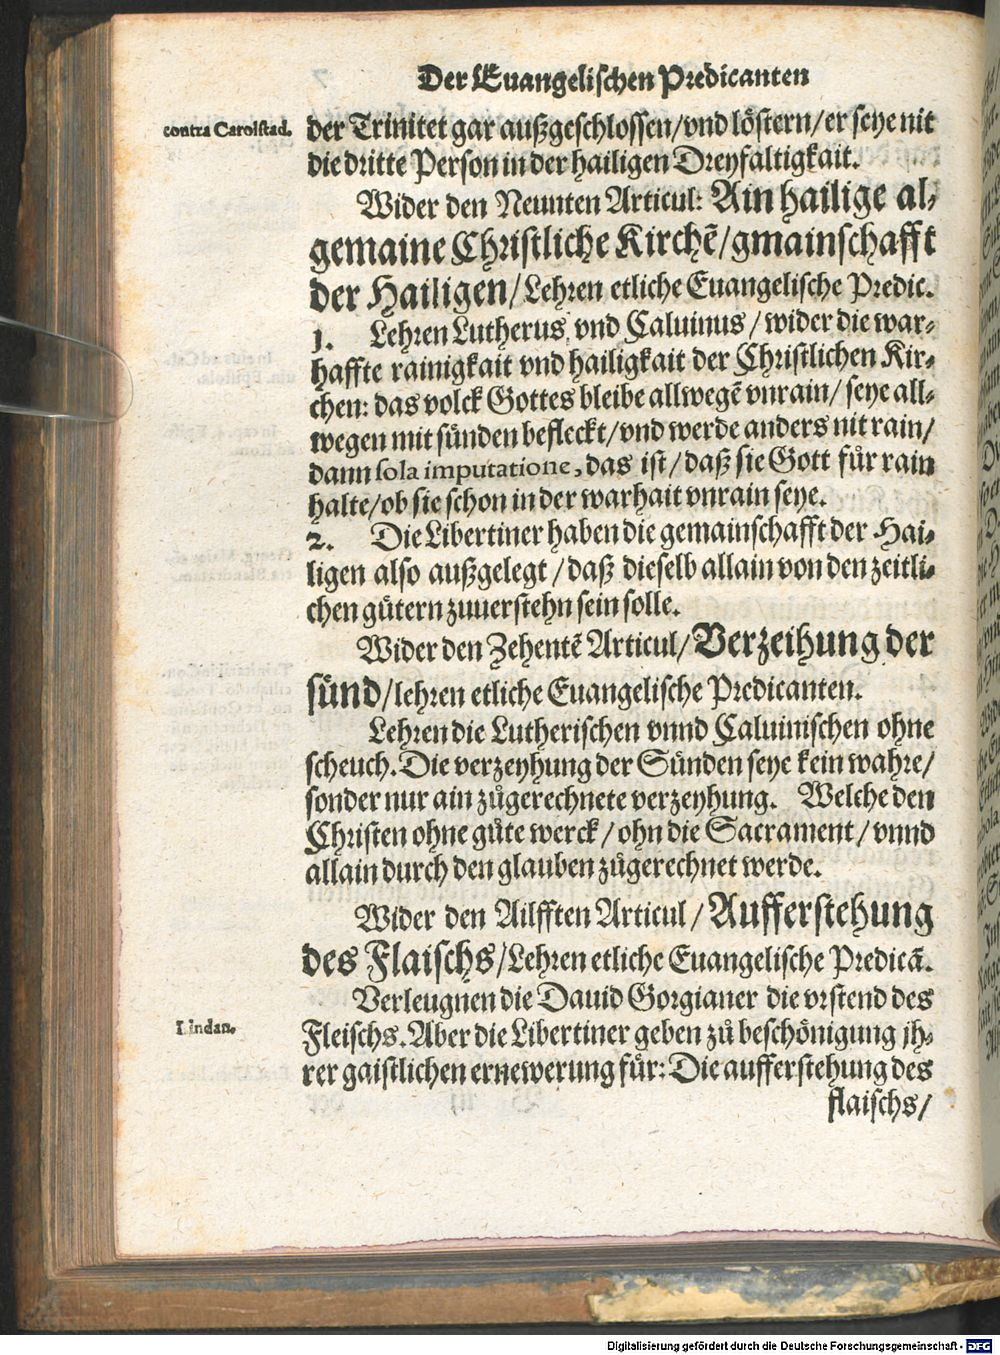 Der Euangelischen Predicanten
contra Carolstad.
der Trinitet gar außgeschlossen/vnd löstern/er seye nit
die dritte Person in der hailigen Dreyfaltigkait.
Wider den Neunten Articul: Ain hailige al-
gemaine Christliche Kirchẽ/gmainschafft
der Hailigen/Lehren etliche Euangelische Predic.
1. Lehren Lutherus vnd Caluinus/wider die war-
haffte rainigkait vnd hailigkait der Christlichen Kir-
chen: das volck Gottes bleibe allwegẽ vnrain/seye all-
wegen mit sünden befleckt/vnd werde anders nit rain/
dann sola imputatione, das ist/daß sie Gott für rain
halte/ob sie schon in der warhait vnrain seye.
2. Die Libertiner haben die gemainschafft der Hai-
ligen also außgelegt/daß dieselb allain von den zeitli-
chen gütern zuuerstehn sein solle.
Wider den Zehentẽ Articul/Verzeihung der
sünd/lehren etliche Euangelische Predicanten.
Lehren die Lutherischen vnnd Caluinischen ohne
scheuch. Die verzeyhung der Sünden seye kein wahre/
sonder nur ain zůgerechnete verzeyhung. Welche den
Christen ohne gůte werck/ohn die Sacrament/vnnd
allain durch den glauben zůgerechnet werde.
Wider den Ailfften Articul/Aufferstehung
des Flaischs/Lehren etliche Euangelische Predicã.
Verleugnen die Dauid Gorgianer die vrstend des
Lindan.
Fleischs. Aber die Libertiner geben zů beschönigung jh-
rer gaistlichen ernewerung für: Die aufferstehung des
flaischs/
Digitalisierung gefördert durch die Deutsche Forschungsgemeinschaft - DFG